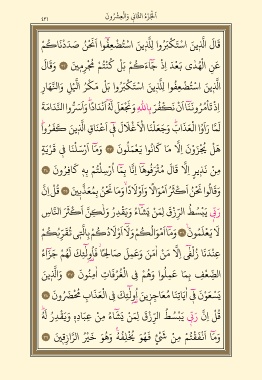 الجزء الثاني والعشرون ٤٣١
قَالَ الَّذِينَ اسْتَكْبَرُوا لِلَّذِينَ اسْتُضْعِفُوا أَنَحْنُ صَدَدْنَاكُمْ
عَنِ الْهُدَى بَعْدَ إِذْ جَاءَكُمْ بَلْ كُنْتُمْ مُجْرِمِينَ ٣٢ وَقَالَ
الَّذِينَ اسْتُضْعِفُوا لِلَّذِينَ اسْتَكْبَرُوا بَلْ مَكْرُ الَّيْلِ وَالنَّهَارِ
إِذْ تَأْمُرُونَنَا أَنْ نَكْفُرَ بِاللهِ وَنَجْعَلَ لَهُ أَنْدَادًا وَأَسَرُّوا النَّدَامَةَ
لَمَّا رَأَوُا الْعَذَابَ وَجَعَلْنَا الْأَغْلَالَ فِي أَعْنَاقِ الَّذِينَ كَفَرُوا
هَلْ يُجْزَوْنَ إِلَّا مَا كَانُوا يَعْمَلُونَ ٣٣ وَمَا أَرْسَلْنَا فِي قَرْيَةٍ
مِنْ نَذِيرٍ إِلَّا قَالَ مُتْرَفُوهَا إِنَّا بِمَا أُرْسِلْتُمْ بِهِ كَافِرُونَ ٣٤
وَقَالُوا نَحْنُ أَكْثَرُ أَمْوَالًا وَأَوْلَادًا وَمَا نَحْنُ بِمُعَذَّبِينَ ٣٥ قُلْ إِنَّ
رَبِّي يَبْسُطُ الرِّزْقَ لِمَنْ يَشَاءُ وَيَقْدِرُ وَلَكِنَّ أَكْثَرَ النَّاسِ
لَا يَعْلَمُونَ ٣٦ وَمَا أَمْوَالُكُمْ وَلَا أَوْلَادُكُمْ بِالَّتِي تُقَرِّبُكُمْ
عِنْدَنَا زُلْفَى إِلَّا مَنْ آمَنَ وَعَمِلَ صَالِحًا فَأُولَئِكَ لَهُمْ جَزَاءُ
الضِّعْفِ بِمَا عَمِلُوا وَهُمْ فِي الْغُرُفَاتِ آمِنُونَ ٣٧ وَالَّذِينَ
يَسْعَوْنَ فِي آيَاتِنَا مُعَاجِزِينَ أُولَئِكَ فِي الْعَذَابِ مُحْضَرُونَ ٣٨
قُلْ إِنَّ رَبِّي يَبْسُطُ الرِّزْقَ لِمَنْ يَشَاءُ مِنْ عِبَادِهِ وَيَقْدِرُ لَهُ
وَمَا أَنْفَقْتُمْ مِنْ شَيْءٍ فَهُوَ يُخْلِفُهُ وَهُوَ خَيْرُ الرَّازِقِينَ ٣٩